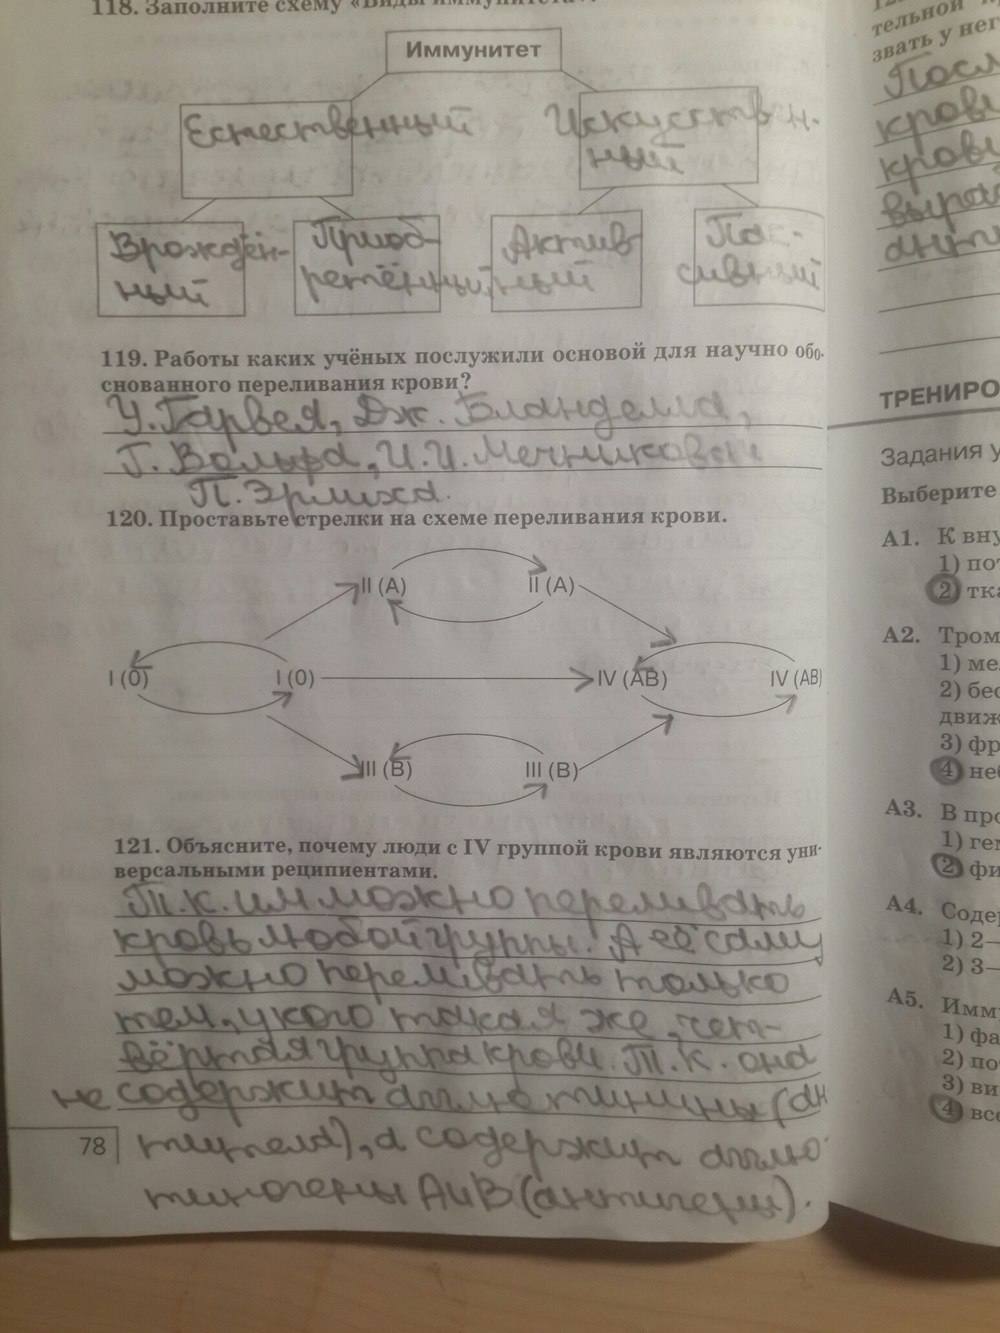 118. Заполните схему «Виды иммунитета».
Иммунитет
Естественный
Искусствен-
ный
Врождён-
ный
Приоб-
ретённый
Актив
ный
Пас-
сивный
119. Работы каких учёных послужили основой для научно обо-
снованного переливания крови?
У. Гарвея, Дж. Бланделла,
Г. Вольфа, И.И. Мечникова и
П. Эрлиха.
120. Проставьте стрелки на схеме переливания крови.
II (A)
II (A)
I (0)
I (0)
IV (AB)
IV (AB)
III (B)
III (B)
121. Объясните, почему люди с IV группой крови являются уни-
версальными реципиентами.
Т.к. им можно переливать
кровь любой группы. А её саму
можно переливать только
тем, у кого такая же чет-
вёртая группа крови. Т.к. она
не содержит агглютинины (ан
титела), а содержит агглю
тиногены А и В (антигены).
78
тельной
звать у нег
Посл
крови
крови
выра
анти
ТРЕНИРО
Задания
Выберите
А1. К вну
1) пот
2) тка
А2. Тром
1) ме
2) бес
движ
3) фр
4) неб
А3. В про
1) гем
2) фи
А4. Содер
1) 2—
2) 3—
А5. Имму
1) фа
2) по
3) ви
4) все